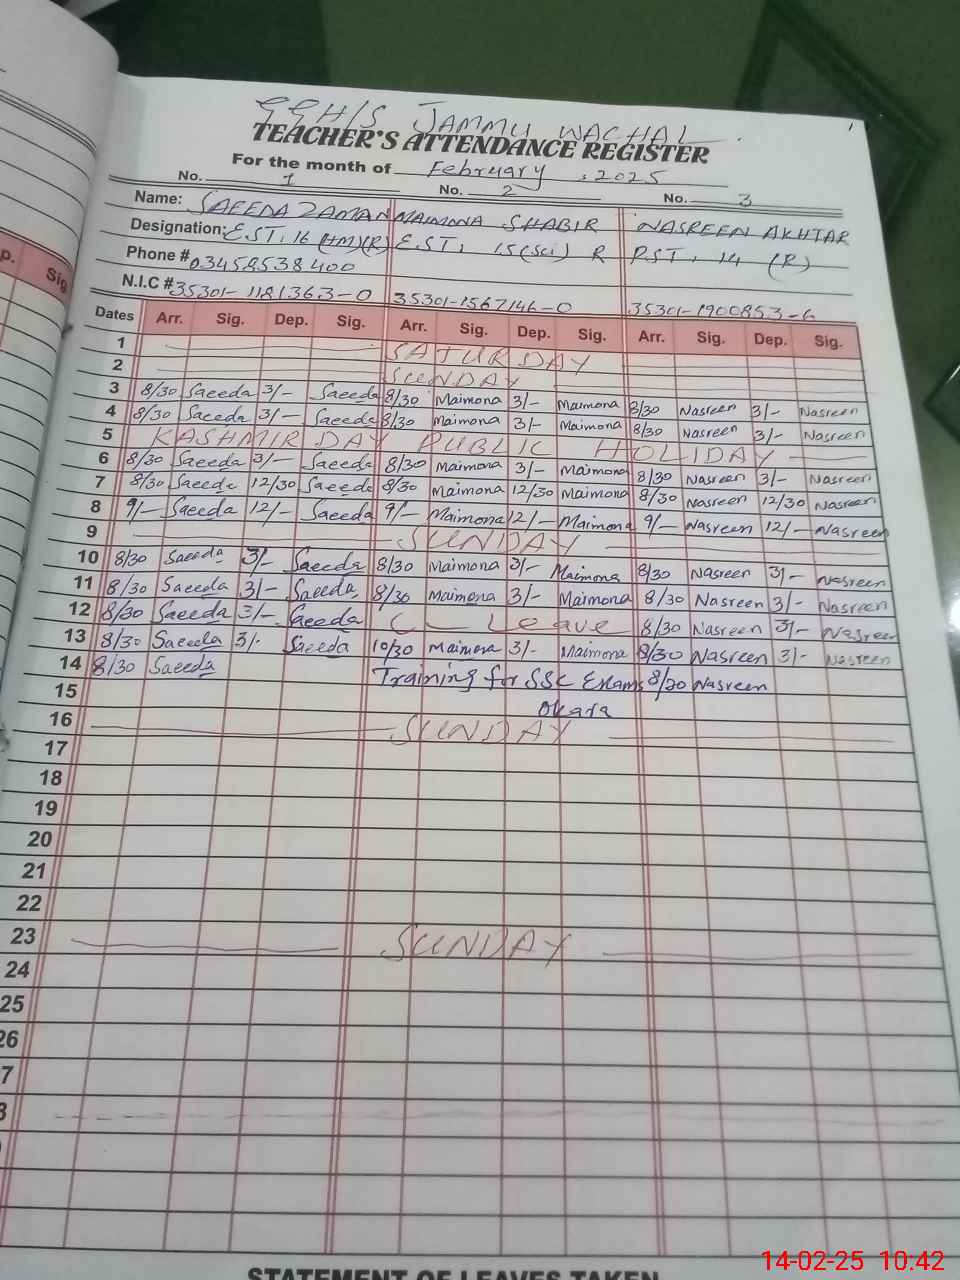 GGH/S JAMMU WACHAL
TEACHER'S ATTENDANCE REGISTER
For the month of February, 2025
No. 1 No. 2 No. 3
Name: SAEEDA ZAMAN MAIMONA SHABIR NASREEN AKHTAR
Designation: E.S.T. 16 (HM)(R) E.S.T. 15(Sci) R P.S.T. 14 (R)
Phone # 03458538400
N.I.C # 35301-1181363-0 35301-1567146-0 35301-1900853-6
Dates Arr. Sig. Dep. Sig. Arr. Sig. Dep. Sig. Arr. Sig. Dep. Sig.
1 SATURDAY
2 SUNDAY
3 8/30 Saeeda 3/- Saeeda 8/30 Maimona 3/- Maimona 8/30 Nasreen 3/- Nasreen
4 8/30 Saeeda 3/- Saeeda 8/30 Maimona 3/- Maimona 8/30 Nasreen 3/- Nasreen
5 KASHMIR DAY PUBLIC HOLIDAY
6 8/30 Saeeda 3/- Saeeda 8/30 Maimona 3/- Maimona 8/30 Nasreen 3/- Nasreen
7 8/30 Saeeda 12/30 Saeeda 8/30 Maimona 12/30 Maimona 8/30 Nasreen 12/30 Nasreen
8 9/- Saeeda 12/- Saeeda 9/- Maimona 12/- Maimona 9/- Nasreen 12/- Nasreen
9 SUNDAY
10 8/30 Saeeda 3/- Saeeda 8/30 Maimona 3/- Maimona 8/30 Nasreen 3/- Nasreen
11 8/30 Saeeda 3/- Saeeda 8/30 Maimona 3/- Maimona 8/30 Nasreen 3/- Nasreen
12 8/30 Saeeda 3/- Saeeda C - Leave 8/30 Nasreen 3/- Nasreen
13 8/30 Saeeda 3/- Saeeda 10/30 Maimona 3/- Maimona 8/30 Nasreen 3/- Nasreen
14 8/30 Saeeda Training for SSC Exams 8/30 Nasreen
15 Okara
16 SUNDAY
17
18
19
20
21
22
23 SUNDAY
24
25
26
7
8
STATEMENT OF LEAVES TAKEN
p. Sig
14-02-25 10:42